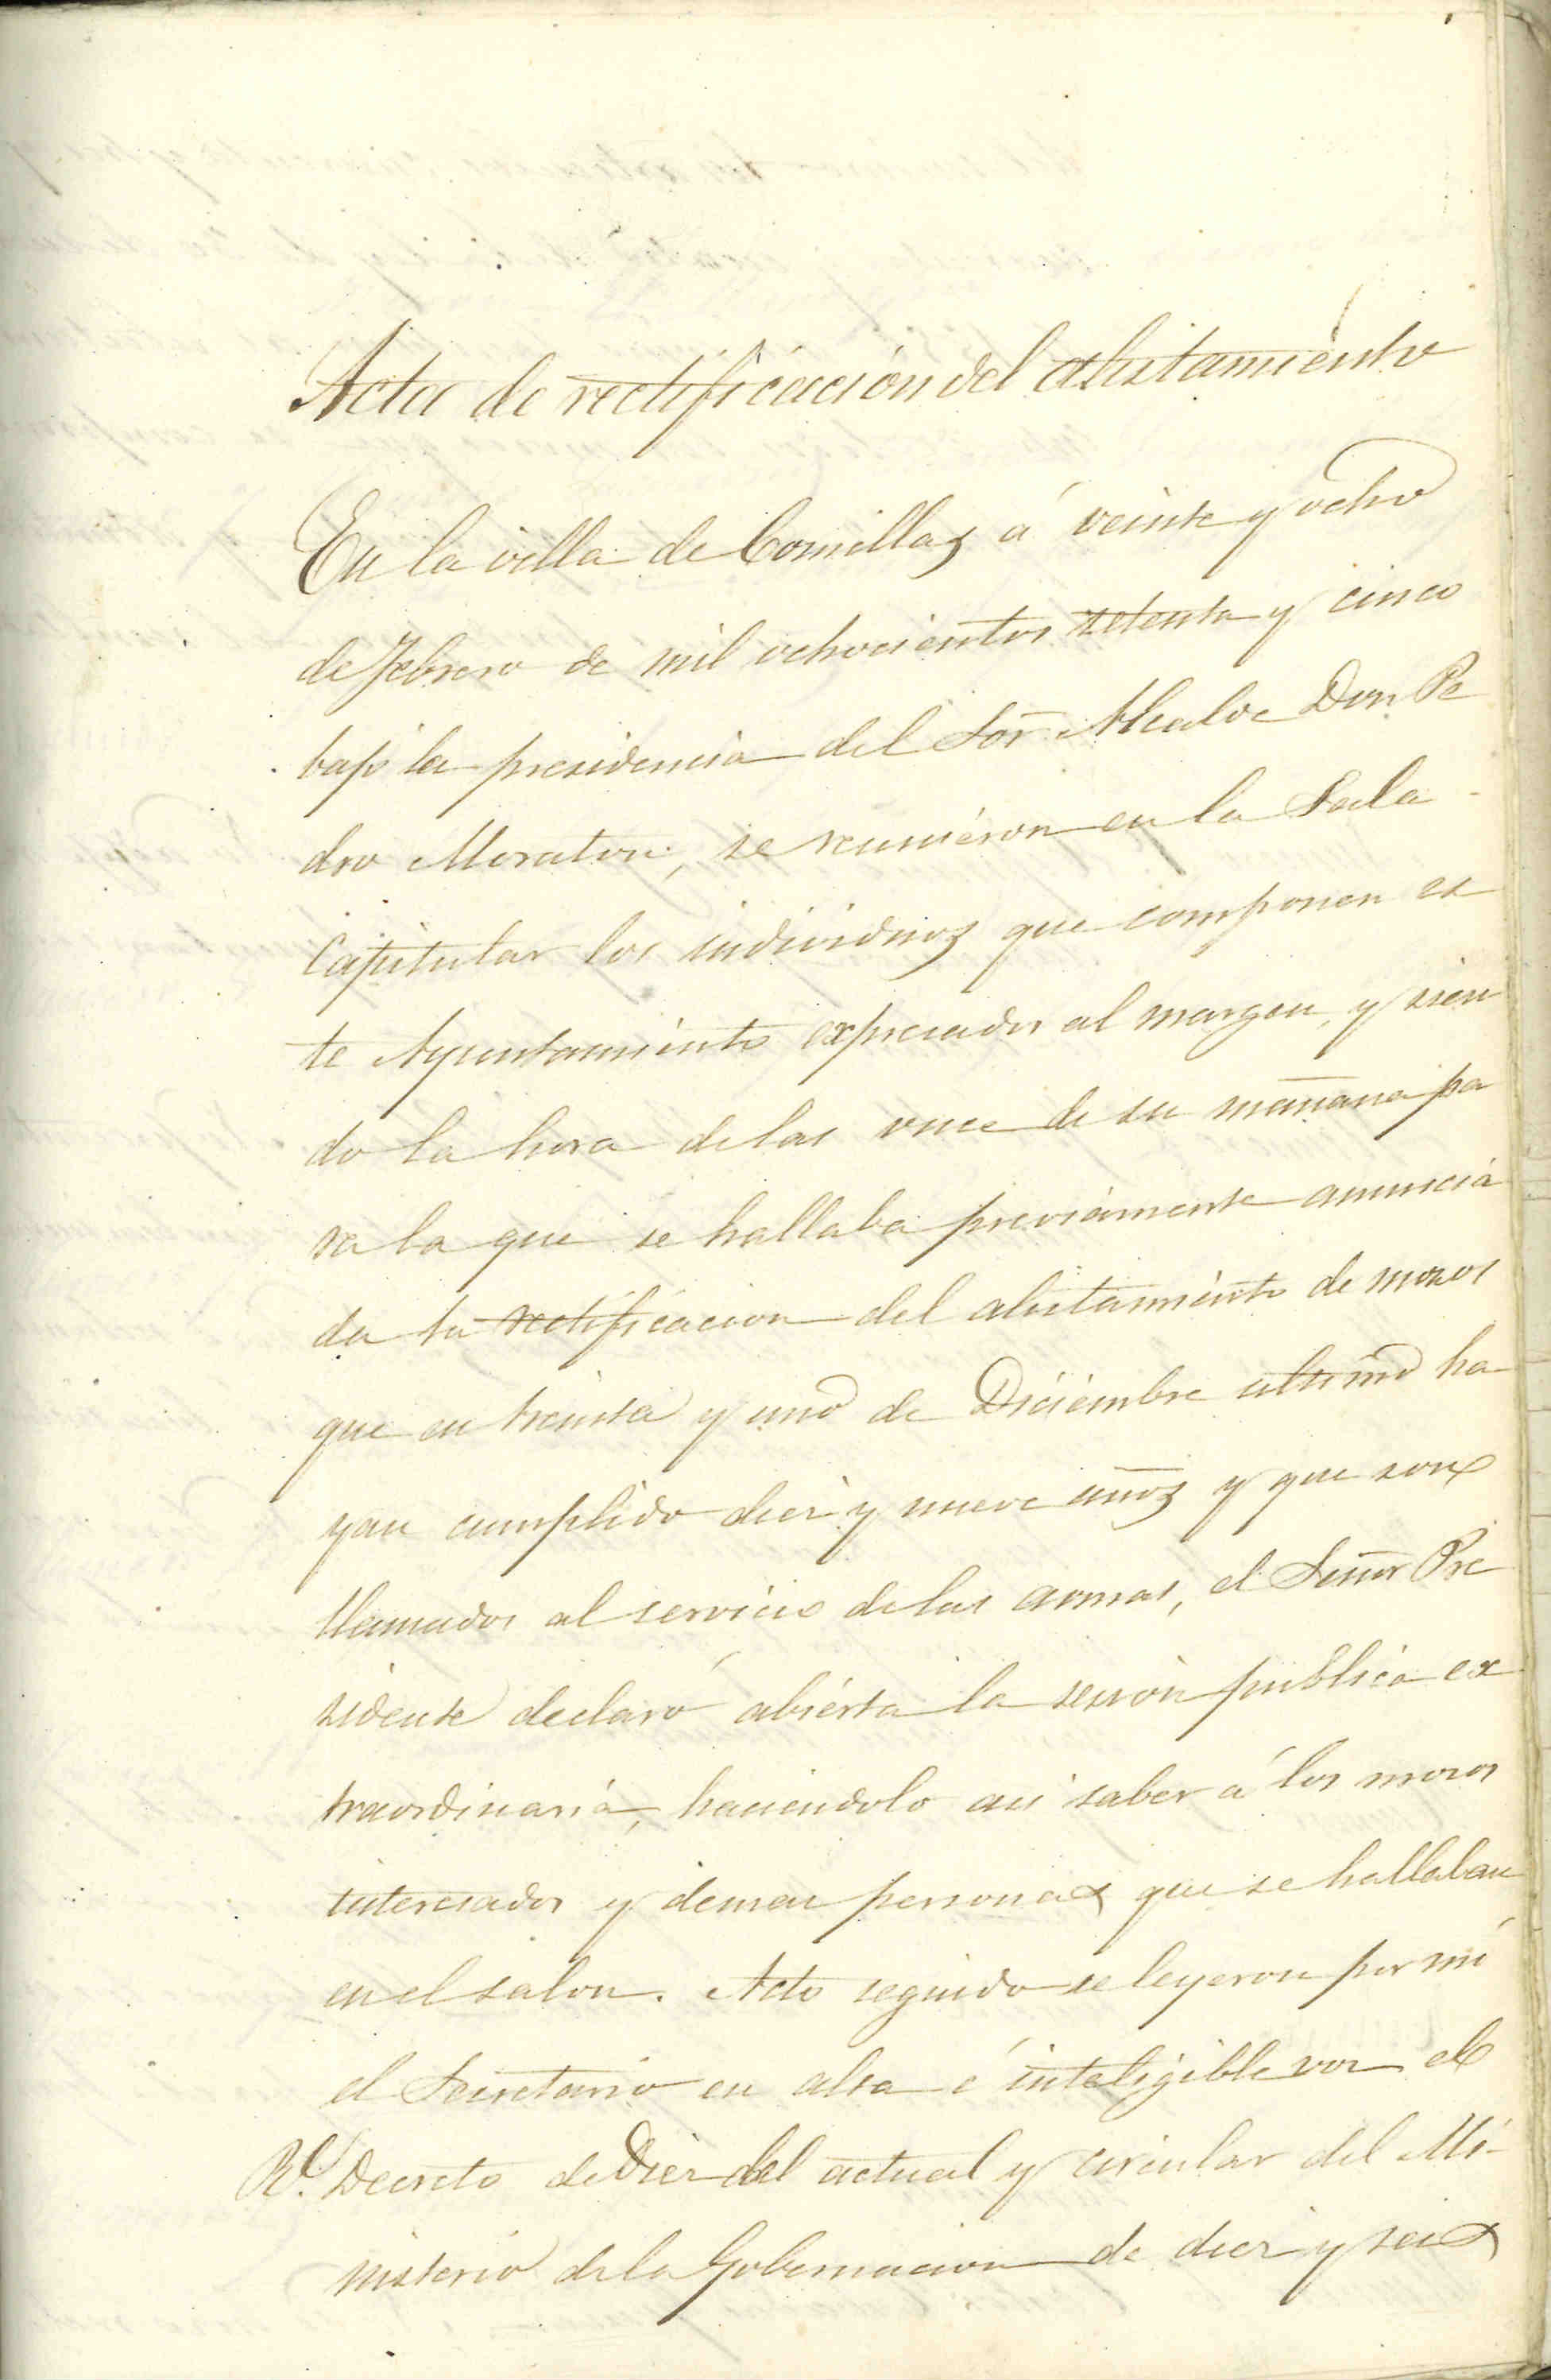 Acta de rectificación del alistamiento
En la villa de Comillas á veinte y ocho
de Febrero de mil ochocientos setenta y cinco
bajo la presidencia del Sor. Alcalde Don Pe
dro Moraton, se reuniéron en la Sala
Capitular los individuos que componen es
te Ayuntamiento expresados al margen, y sien
do la hora de las once de su mañana pa
ra la que se hallaba previamente anuncia
da la rectificacion del alistamiento de mozos
que en treinta y uno de Diciembre ultimo ha
yan cumplido diez y nueve años y que son
llamados al servicio de las armas, el Señor Pre
sidente declaró abierta la sesion publica ex
traordinaria, haciendolo asi saber á los mozos
interesados y demas personas que se hallaban
en el salon. Acto seguido se leyeron por mi
el Secretario en alta é inteligible voz el
Rl. Decreto de Diez del actual y circular del Mi-
nisterio de la Gobernacion de diez y seis